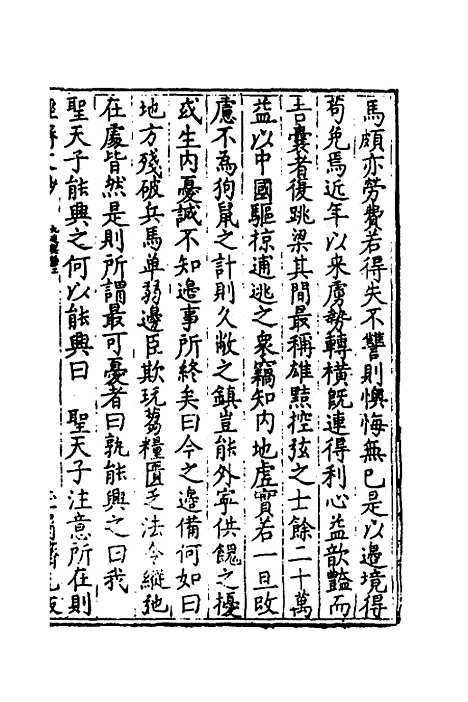 馬頗亦勞費若得失不讐則懊悔無已是以邊境得
苟免焉近年以来虜勢轉橫旣連得利心益歆豔而
吉囊者復跳梁其間最稱雄黠控弦之士餘二十萬
益以中國驅掠逋逃之衆竊知内地虛實若一旦改
慮不為狗鼠之計則久敝之鎮豈能外寧供餽之擾
或生内憂誠不知邊事所終矣曰今之邊備何如曰
地方殘破兵馬单弱邊臣欺玩芻糧匱乏法令縱弛
在處皆然是則所謂最可憂者曰孰能興之曰我
聖天子能興之何以能興曰 聖天子注意所在則